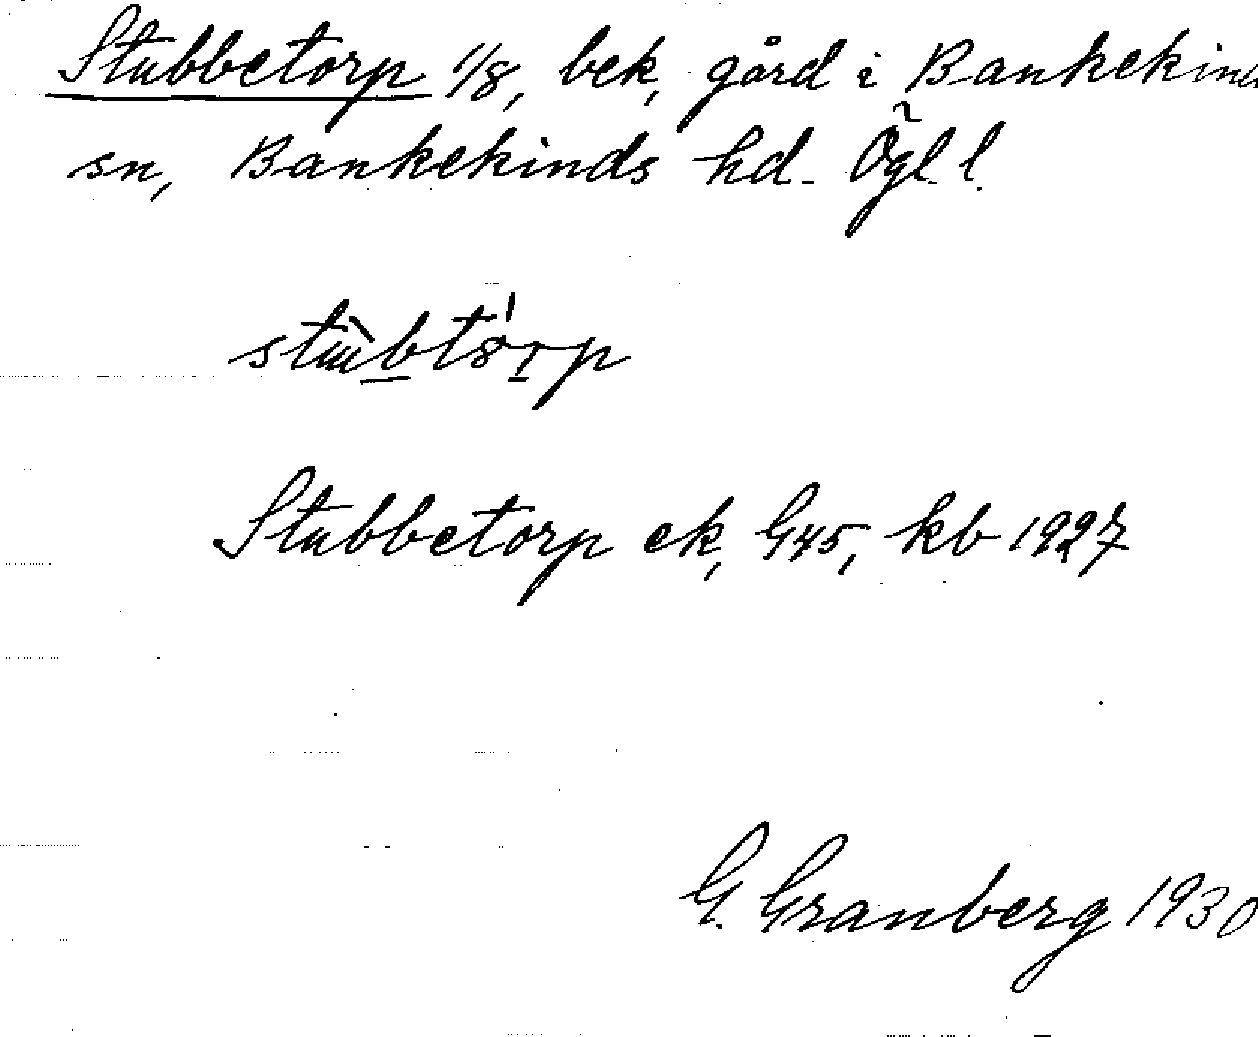 Stubbetorp 1/8, bek, gård i Bankekind
sn, Bankekinds hd. Ögl l.
Stubbetorp ek, G45, kb 1927
G. Granberg 1930